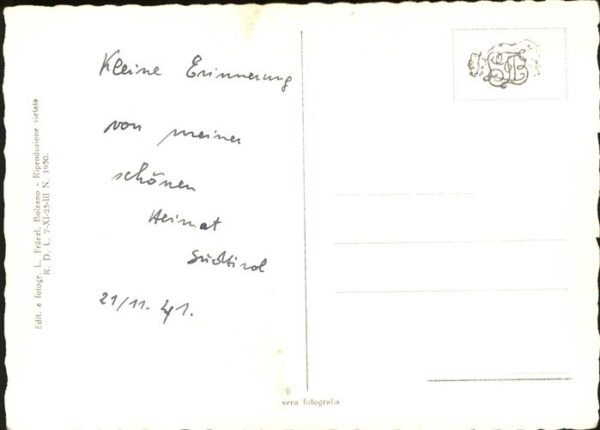 Kleine Erinnerung
von meiner
schönen
Heimat
Südtirol
21/11. 41.
Edit. e fotogr. L. Fränzl, Bolzano - Riproduzione vietata
R. D. L. 7-XI-25-III N. 1950.
vera fotografia